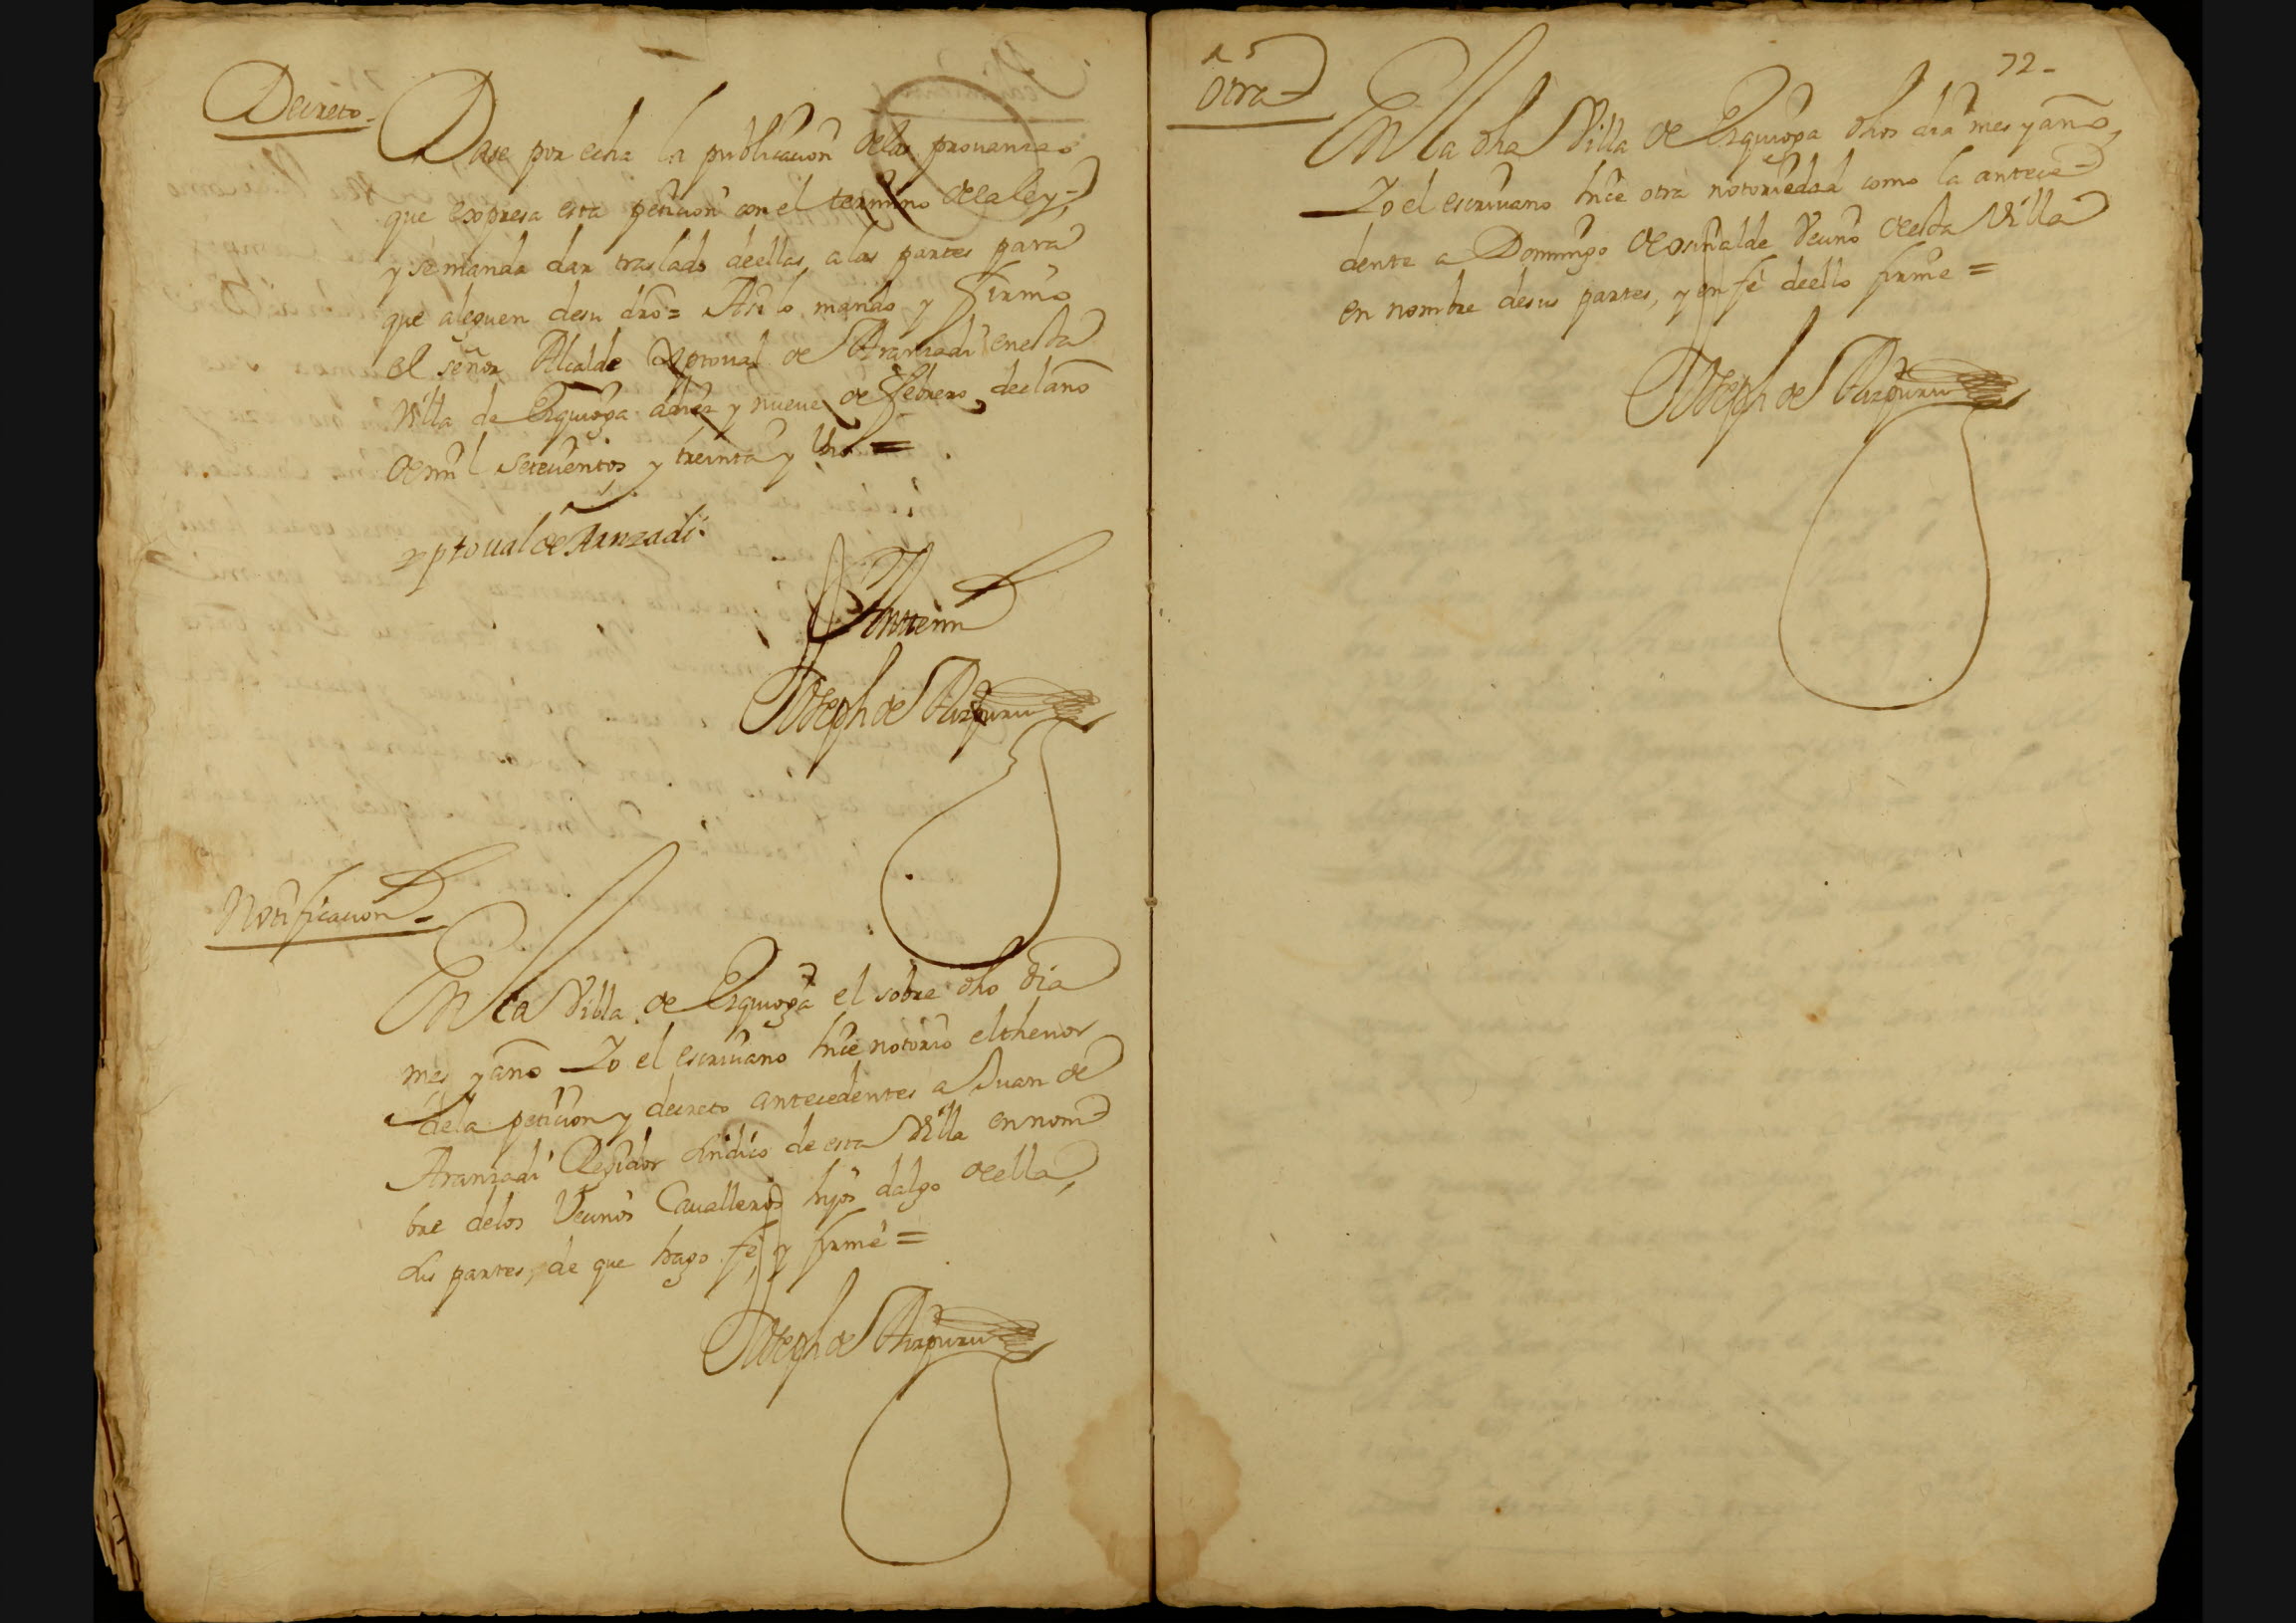 Decreto-
Dase por echa la publicacion delas prouanzas
que expresa esta peticion con el termino dela ley,
y se manda dar traslado deellas, alas partes para
que aleguen desu dro = Asi lo mando y firmo
el señor Alcalde Xptoual de Aranzadi enesta
Villa de Ezquioga a diez y nueue de febrero, deel año
de mil setecientos y treinta y Uno =
Xptoual de Aranzadi
Ante mi
Joseph de Aizpuru
Notificacion-
En la Villa de Ezquioga el sobre dho dia
mes y año Yo el escriuano hice notorio el thenor
dela peticion y decreto antecedentes a Juan de
Aranzadi Regidor sindico de esta Villa en nom
bre delos Vecinos Caualleros hijos dalgo deella,
sus partes, de que hago fe, y firme =
Joseph de Aizpuru
72-
Otra
En la dha Villa de Ezquioga dhos dia mes y año,
Yo el escriuano hice otra notoriedad como la antece
dente a Domingo de Vecino deesta Villa
en nombre desus partes, y en fe deello firme =
Joseph de Aizpuru